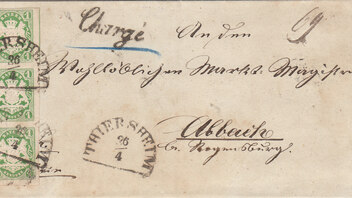 Chargé
An den
Wohllöblichen Markt-Magistrat
Abbach
b. Regensburg.
THIERSHEIM
26
4
THIERSHEIM
26
4